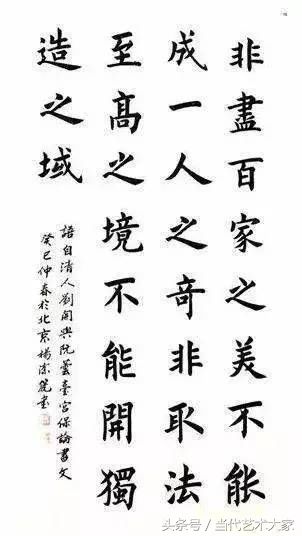 非盡百家之美不能
成一人之奇非取法
至高之境不能開獨
造之域
語自清人劉開與阮芸臺宮保論書文
癸巳仲春於北京楊崇儀書
头条号 / 当代艺术大家